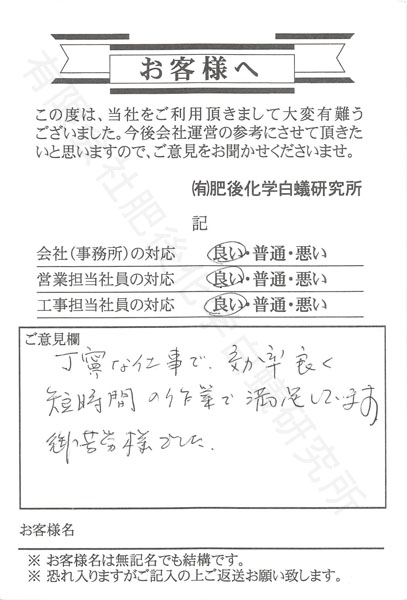 お客様へ
この度は、当社をご利用頂きまして大変有難う
ございました。今後会社運営の参考にさせて頂きた
いと思いますので、ご意見をお聞かせくださいませ。
㈲肥後化学白蟻研究所
記
会社(事務所)の対応 良い・普通・悪い
営業担当社員の対応 良い・普通・悪い
工事担当社員の対応 良い・普通・悪い
ご意見欄
丁寧な仕事で、効率良く
短時間の作業で満足しています
御苦労様でした。
お客様名
※ お客様名は無記名でも結構です。
※ 恐れ入りますがご記入の上ご返送お願い致します。
有限会社肥後化学白蟻研究所